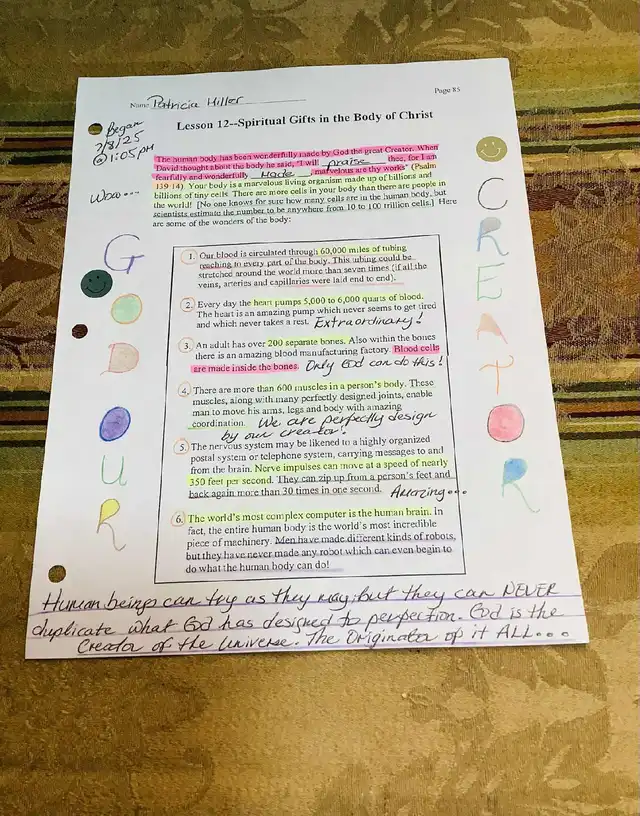 Page 85
Name Patricia Hiller
Began
2/8/25
@ 1:05 pm
Lesson 12--Spiritual Gifts in the Body of Christ
The human body has been wonderfully made by God the great Creator. When
David thought about the body he said, "I will praise thee, for I am
fearfully and wonderfully Made, marvelous are thy works" (Psalm
139:14). Your body is a marvelous living organism made up of billions and
billions of tiny cells. There are more cells in your body than there are people in
the world! [No one knows for sure how many cells are in the human body, but
scientists estimate the number to be anywhere from 10 to 100 trillion cells.] Here
are some of the wonders of the body:
Wow...
GOD
OUR
CREATOR
1. Our blood is circulated through 60,000 miles of tubing
reaching to every part of the body. This tubing could be
stretched around the world more than seven times (if all the
veins, arteries and capillaries were laid end to end).
2. Every day the heart pumps 5,000 to 6,000 quarts of blood.
The heart is an amazing pump which never seems to get tired
and which never takes a rest. Extraordinary!
3. An adult has over 200 separate bones. Also within the bones
there is an amazing blood manufacturing factory. Blood cells
are made inside the bones. Only God can do this!
4. There are more than 600 muscles in a person's body. These
muscles, along with many perfectly designed joints, enable
man to move his arms, legs and body with amazing
coordination. We are perfectly design
by our creator!
5. The nervous system may be likened to a highly organized
postal system or telephone system, carrying messages to and
from the brain. Nerve impulses can move at a speed of nearly
350 feet per second. They can zip up from a person's feet and
back again more than 30 times in one second. Amazing...
6. The world's most complex computer is the human brain. In
fact, the entire human body is the world's most incredible
piece of machinery. Men have made different kinds of robots,
but they have never made any robot which can even begin to
do what the human body can do!
Human beings can try as they may; but they can NEVER
duplicate what God has designed to perfection. God is the
Creator of the Universe. The Originator of it ALL...